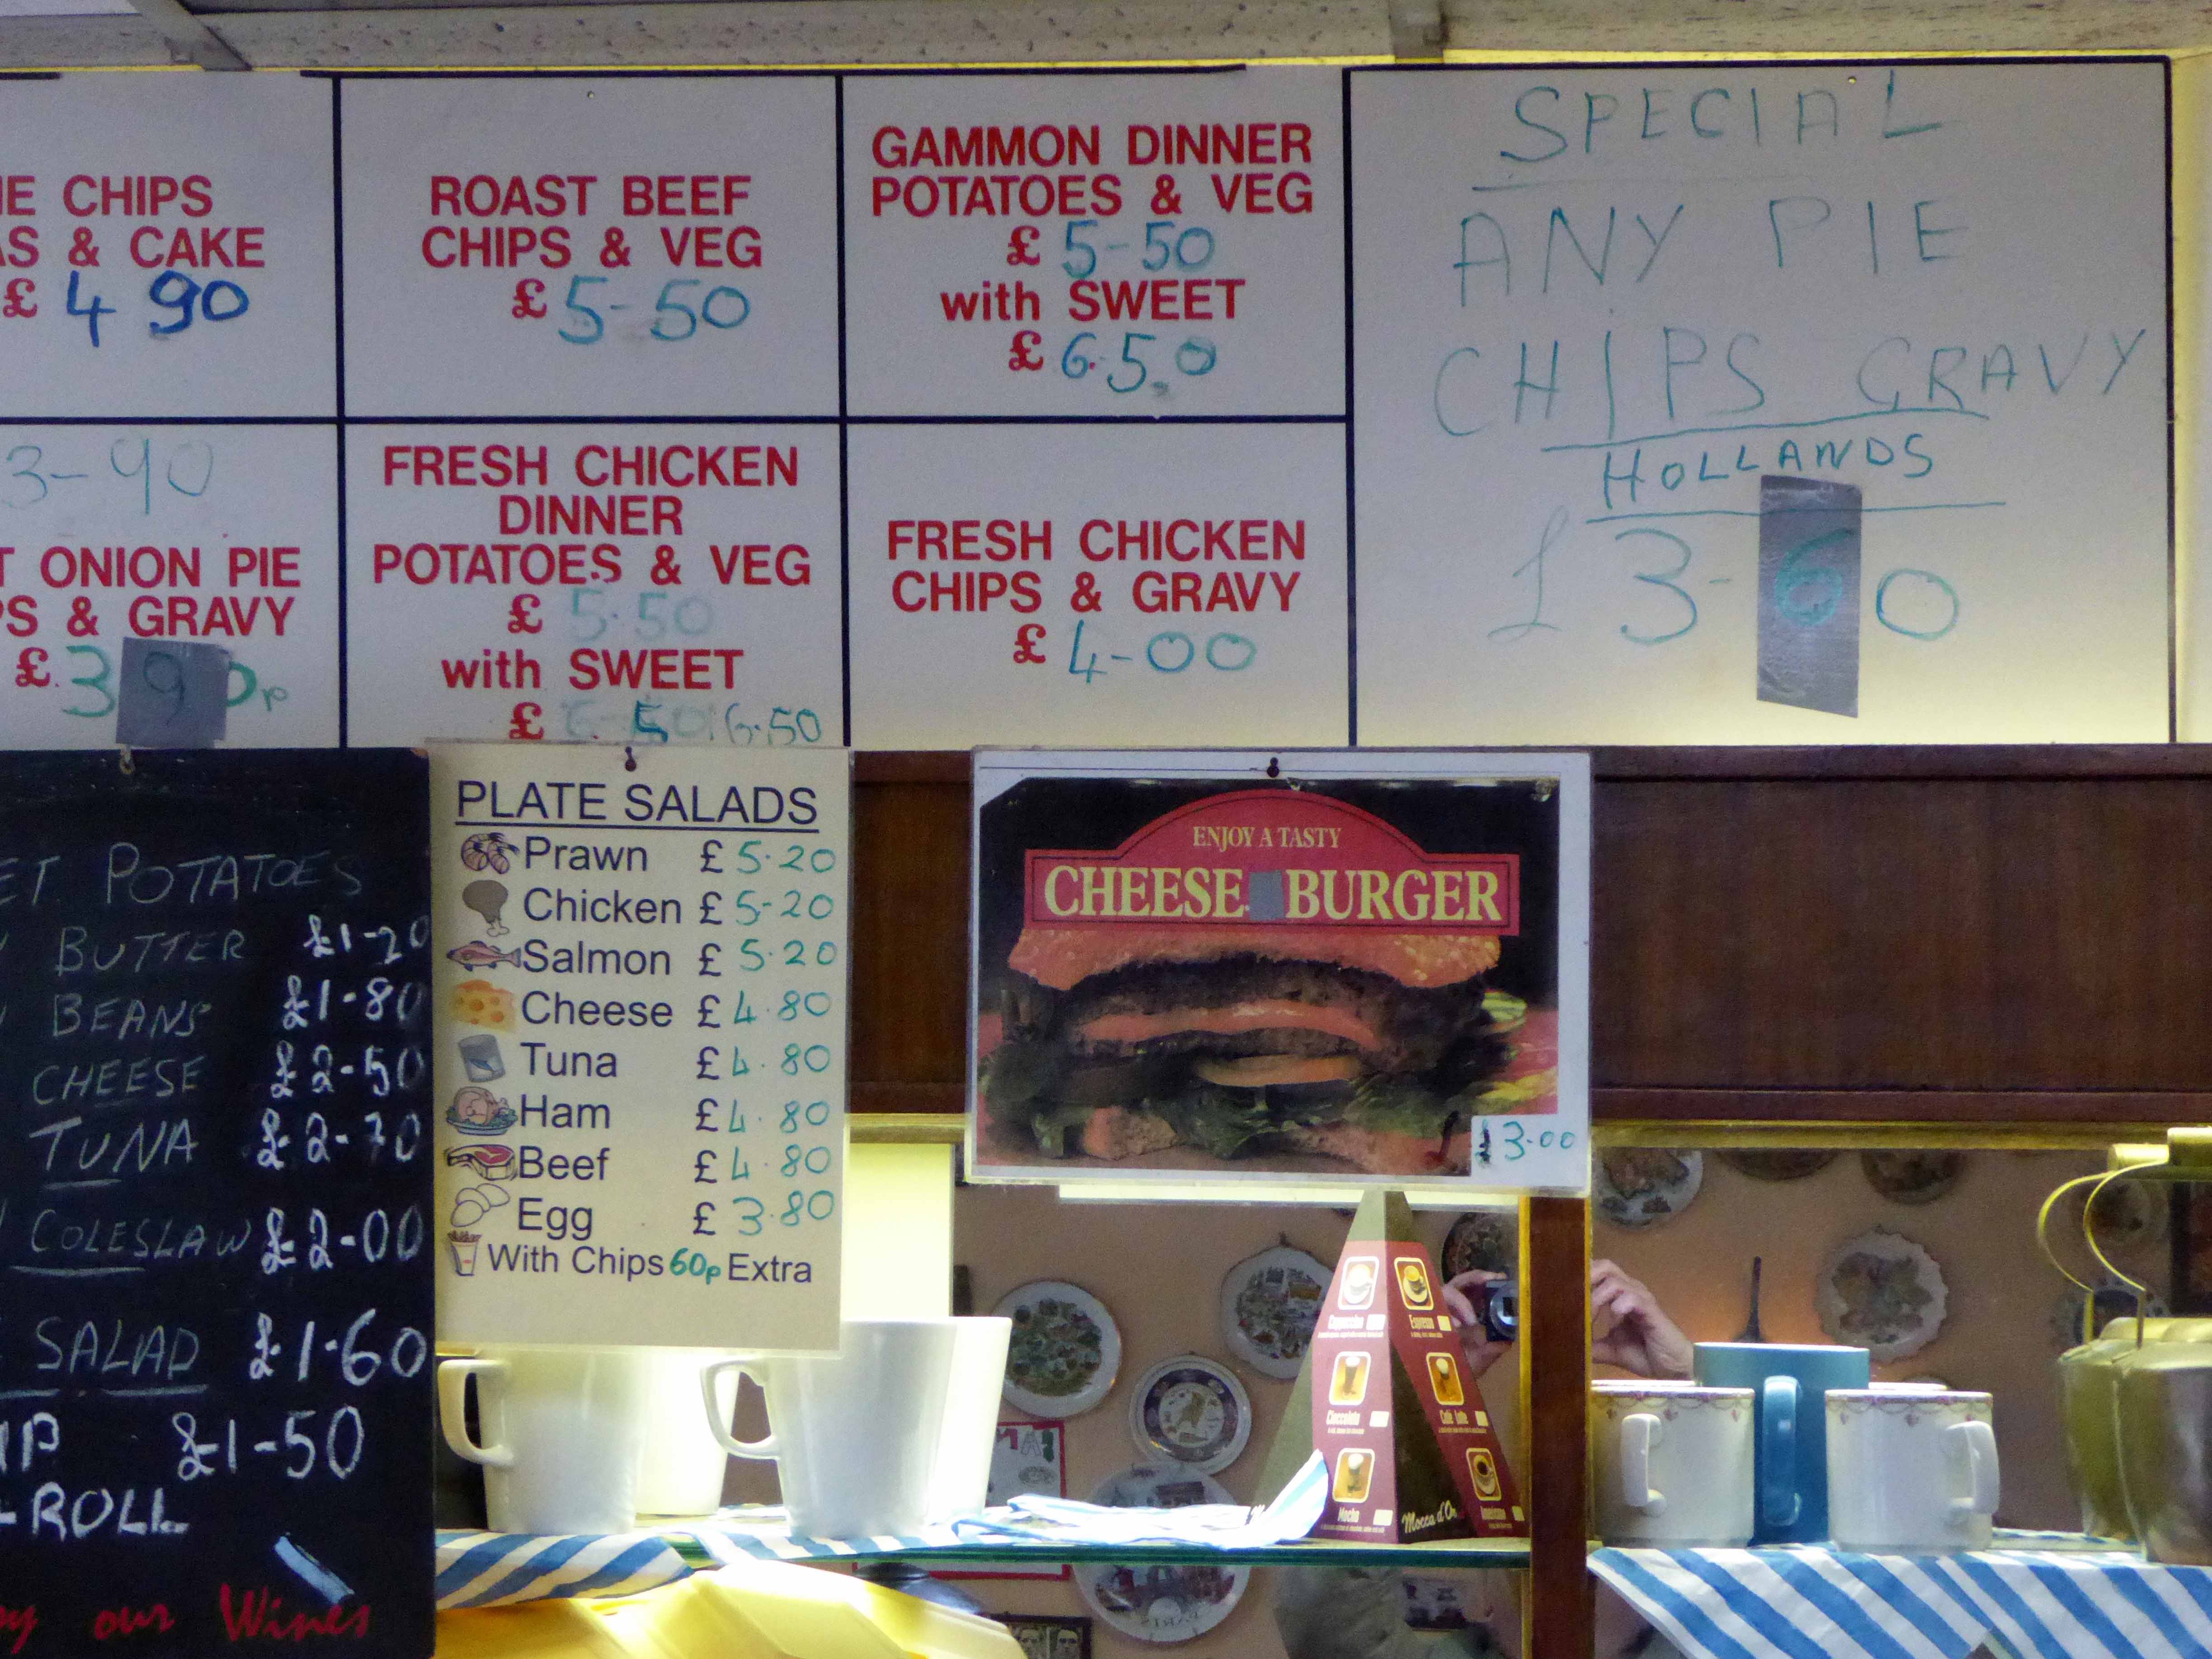 CHIPS
& CAKE
£ 4 90
ROAST BEEF
CHIPS & VEG
£ 5-50
GAMMON DINNER
POTATOES & VEG
£ 5-50
with SWEET
£ 6.50
SPECIAL
ANY PIE
CHIPS GRAVY
HOLLANDS
£3-60
3-90
ONION PIE
& GRAVY
£.3 90p
FRESH CHICKEN
DINNER
POTATOES & VEG
£ 5.50
with SWEET
£ 6-50 6.50
FRESH CHICKEN
CHIPS & GRAVY
£ 4-00
POTATOES
BUTTER £1-20
BEANS £1-80
CHEESE £2-50
TUNA £2-70
COLESLAW £2-00
SALAD £1-60
£1-50
ROLL
our Wines
PLATE SALADS
Prawn £5.20
Chicken £5-20
Salmon £5.20
Cheese £4.80
Tuna £4.80
Ham £4.80
Beef £4.80
Egg £3.80
With Chips 60p Extra
ENJOY A TASTY
CHEESE BURGER
£3.00
Cappuccino
Espresso
Cioccolato
Café latte
Mocha
Mocca d'Or
PARIS